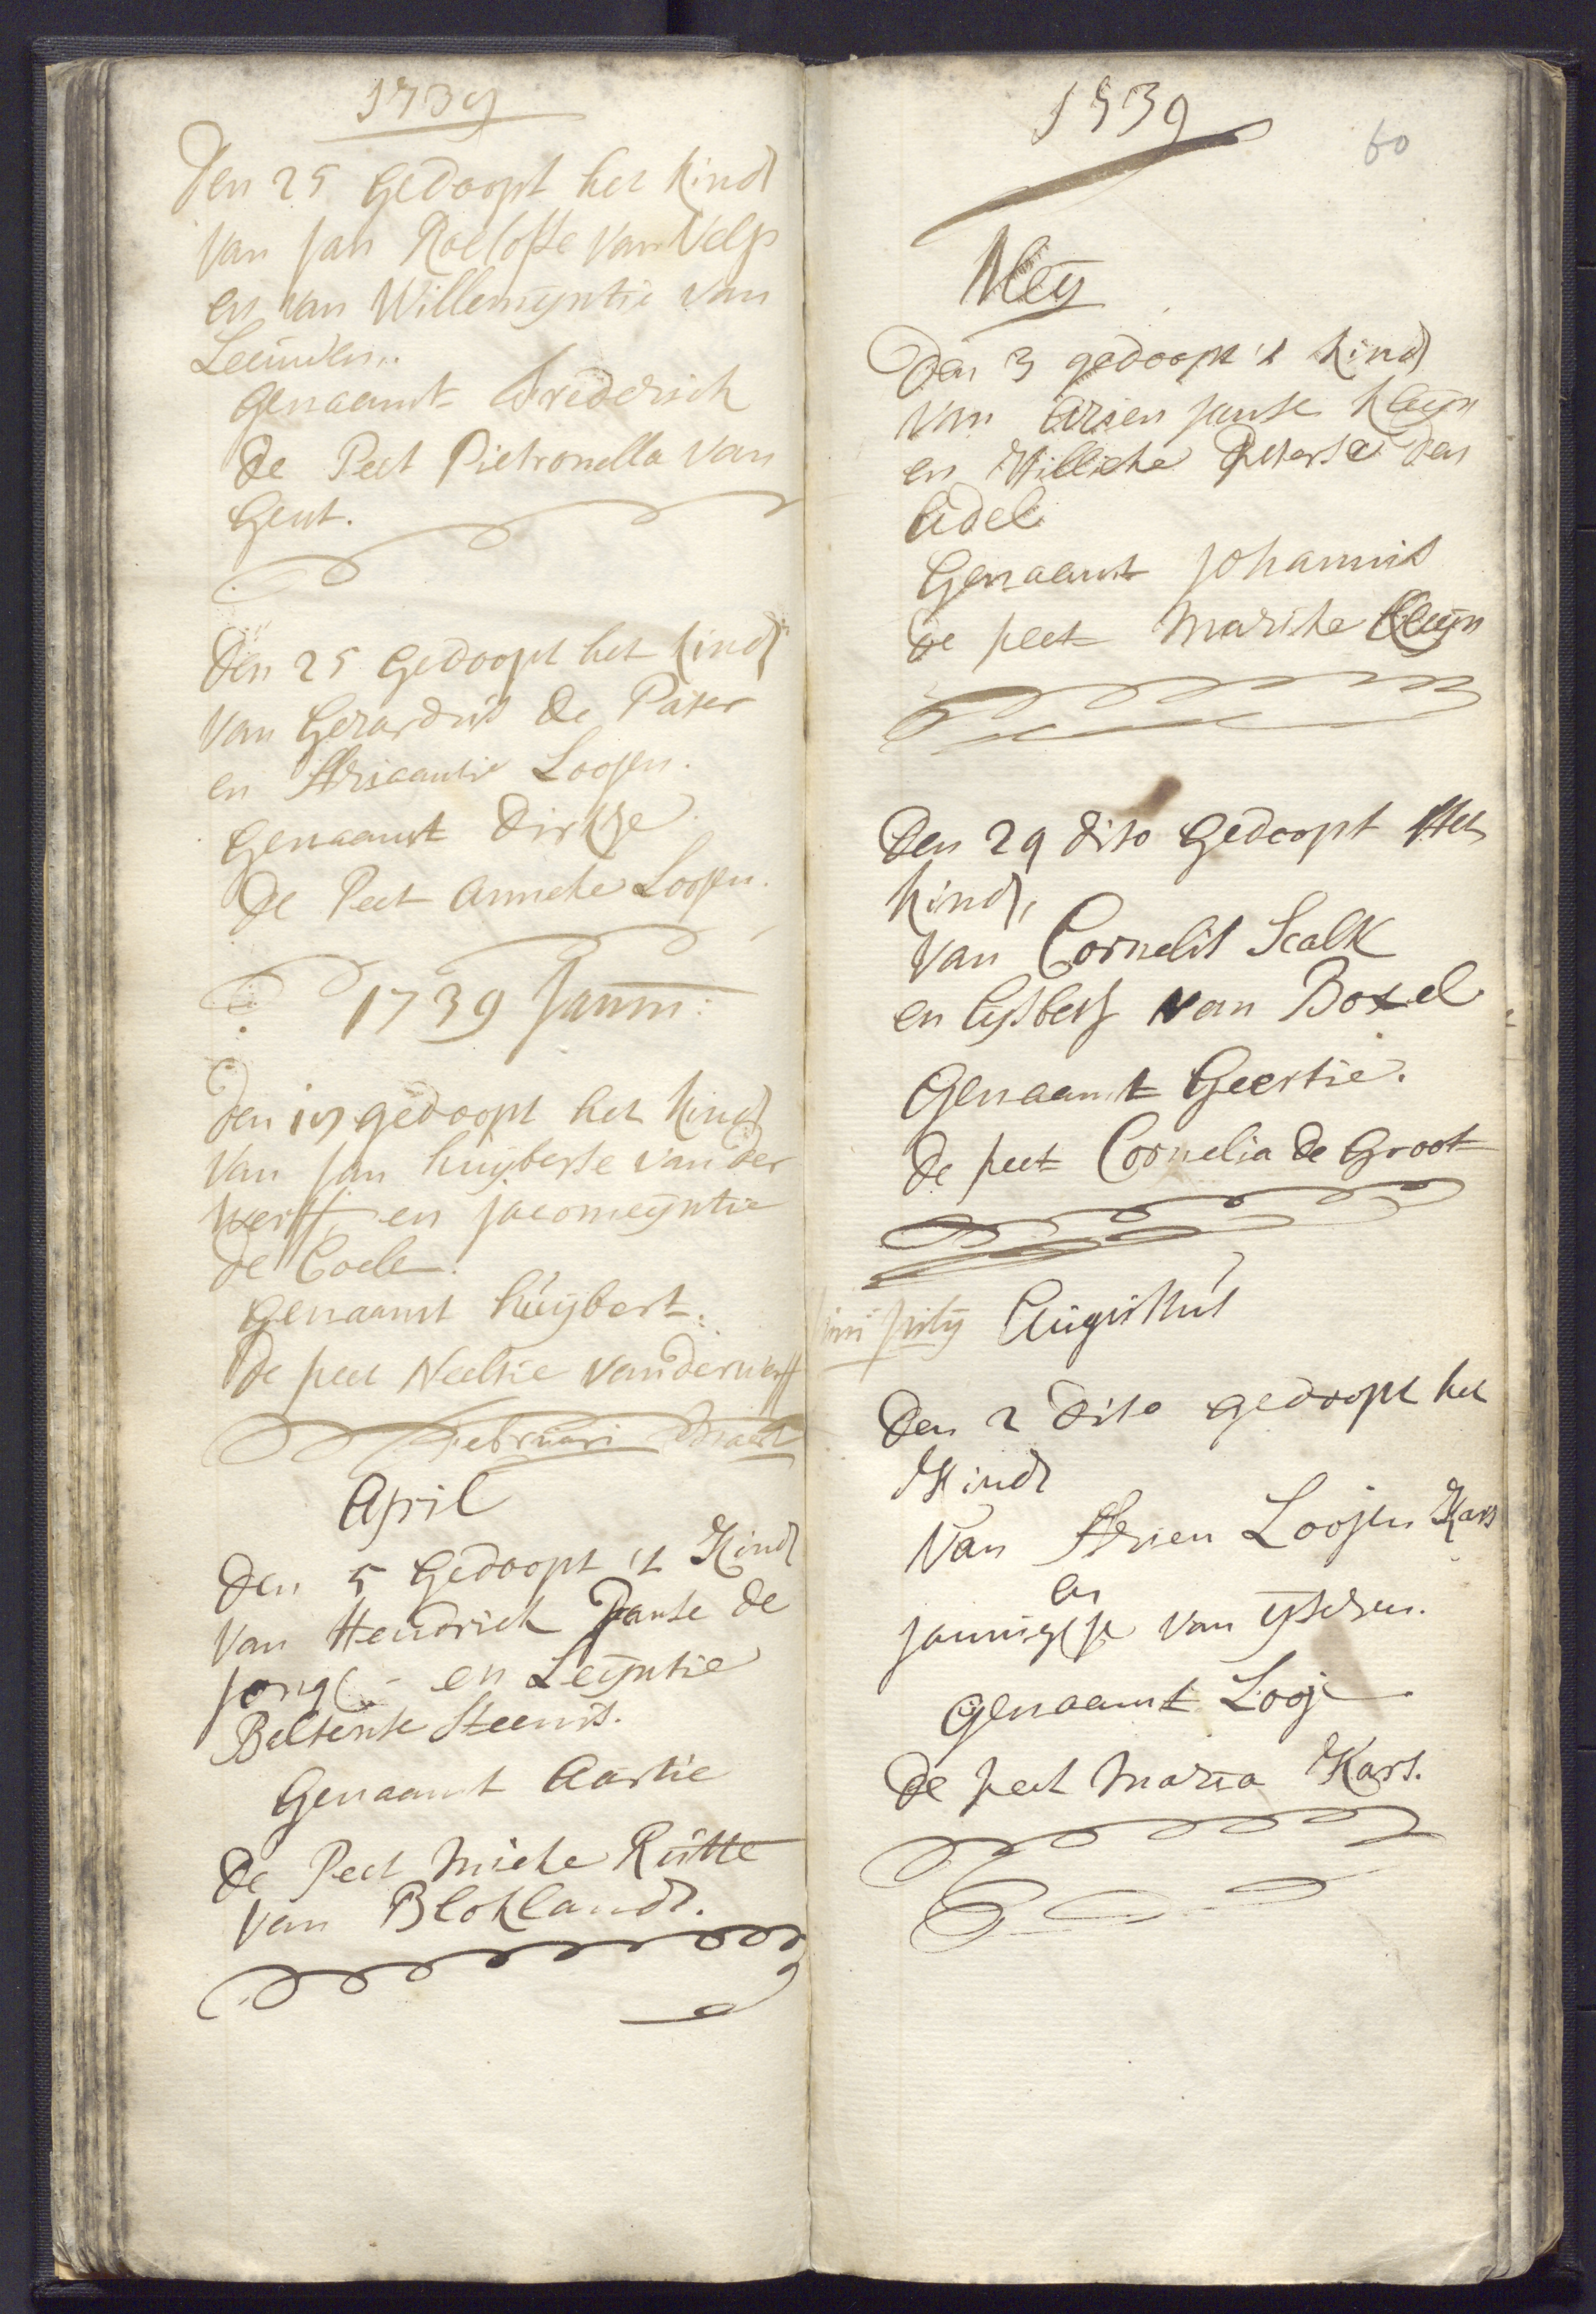 1739
Den 25 Gedoopt het kindt
van Jan Roelofse van Velp
en van Willemÿntie van
Leeuwen..
Genaamt Frederick
De Peet Pietronella van
Gent.
Den 25 Gedoopt het kindt
van Gerardus de Pater
en Adriaantie Loojen.
Genaamt Dirkje
De Peet Anneke Loojen.
1739 Janu:
Den gedoopt het kindt
van Jan huÿberse van der
werff, en Jacomeÿntie
de Cocle.
Genaamt huÿbert.
De peet Neeltie vanderwerff
Februari Maert
April
Den 5 Gedoopt 't Kindt
van Hendrick Janse de
Jong en Leÿntie
Steenis.
Genaamt Aartie
De Peet Mieke Rutte
van Bloklandt.
1739
60
Meÿ
Den 3 gedoopt 't kindt
van Arien Janse kleÿn
en Willeke Peterse den
Adel
Genaamt Johannis
de peet Marike Kleÿn
Den 29 dito Gedoopt Het
kindt,
van Cornelis Scalk
en Lijsbet van Boxel
Genaamt Geertie.
de peet Cornelia de Groot
Juni Julÿ Augustus
Den 2 dito gedoopt het
Kindt
van Adrien Loojen Kars
en
Jannigje van ÿsdren.
Genaamt Looj
de peet Maria Kars.